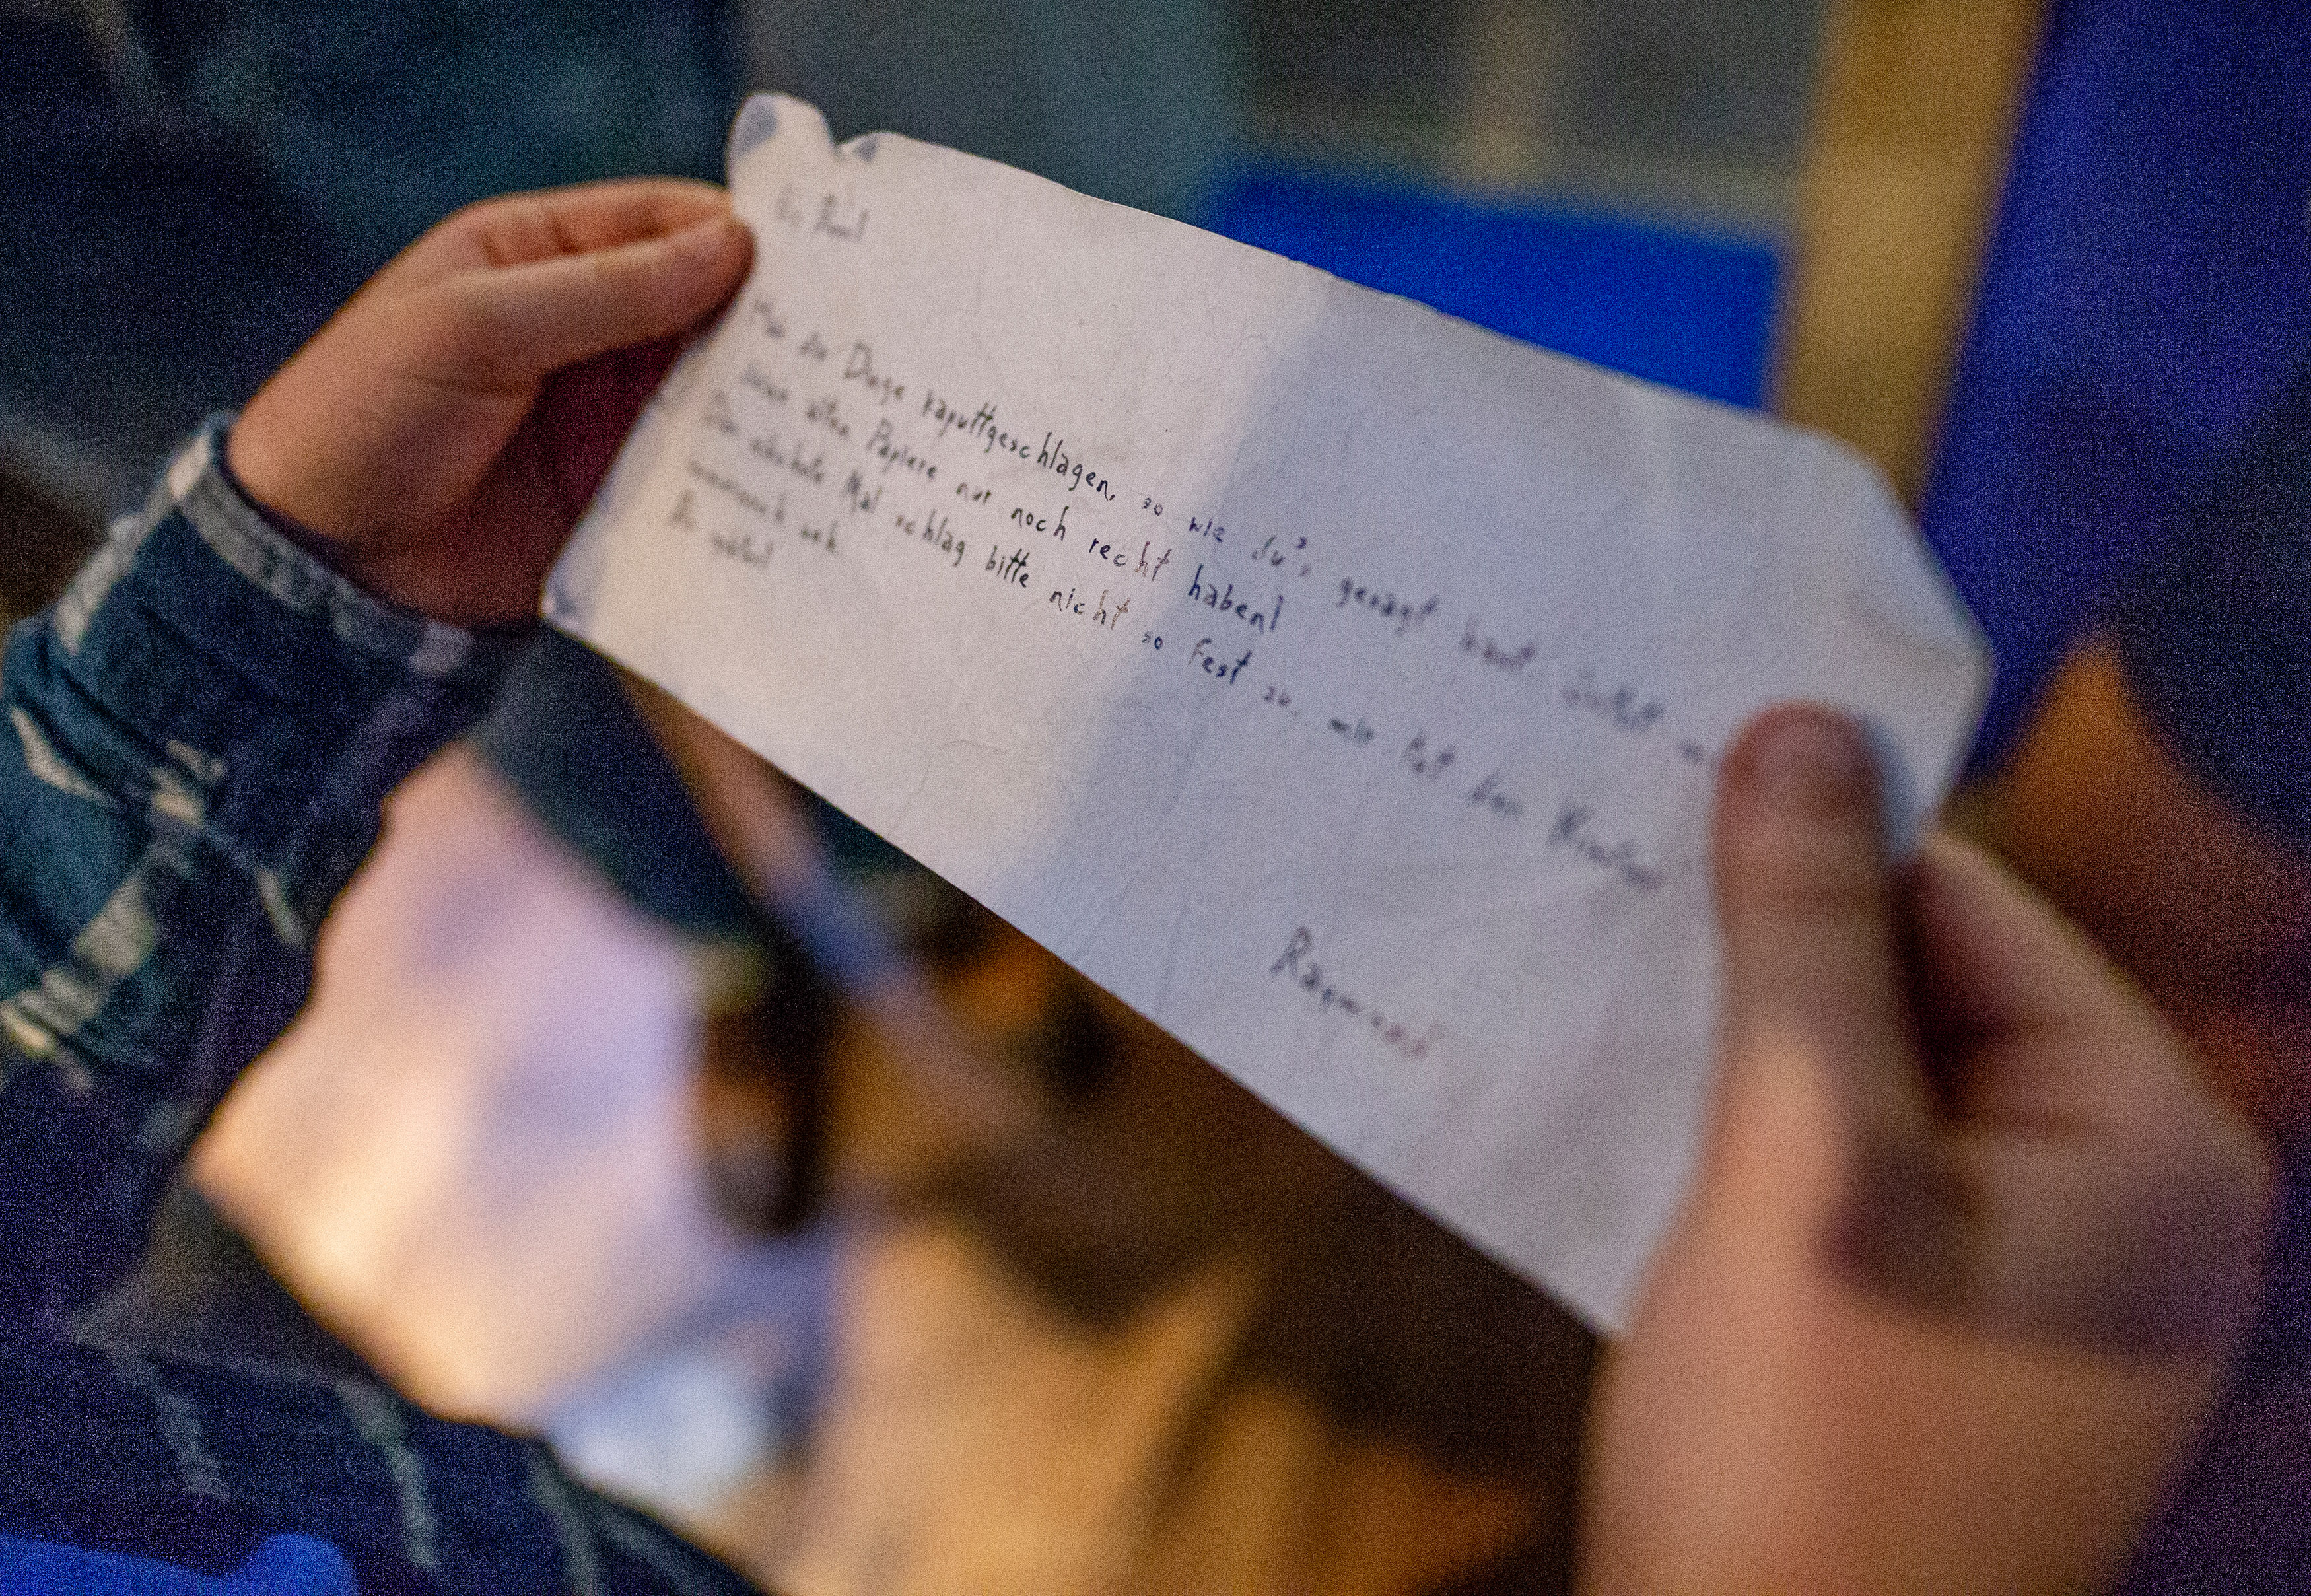 Ey, Paul
Hab die Dinge kaputtgeschlagen, so wie du's gesagt hast. Sollst
deinen alten Papiere nur noch recht haben!
Das nächste Mal schlag bitte nicht so fest zu, mir tut das
immernoch weh.
Bis später!
Raymond